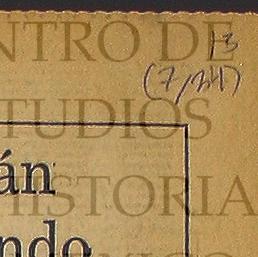 NTRO DE
13
(7/244)
TUDIOS
án
HISTORIA
ndo